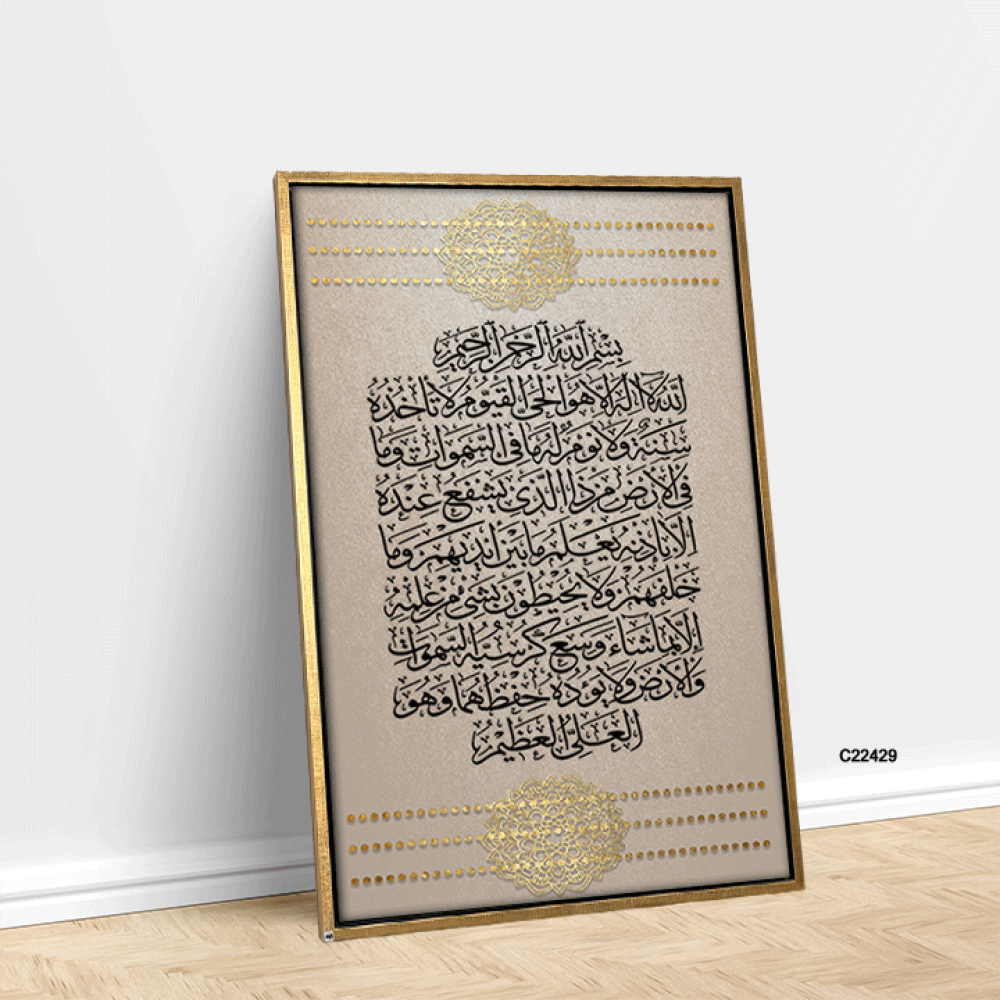 بسم الله الرحمن الرحيم
الله لا اله الا هو الحي القيوم لا تأخذه
سنة ولا نوم له ما في السموات وما
في الارض من ذا الذي يشفع عنده
الا باذنه يعلم ما بين ايديهم وما
خلفهم ولا يحيطون بشئ من علمه
الا بما شاء وسع كرسيه السموات
والارض ولا يؤده حفظهما وهو
العلي العظيم
C22429